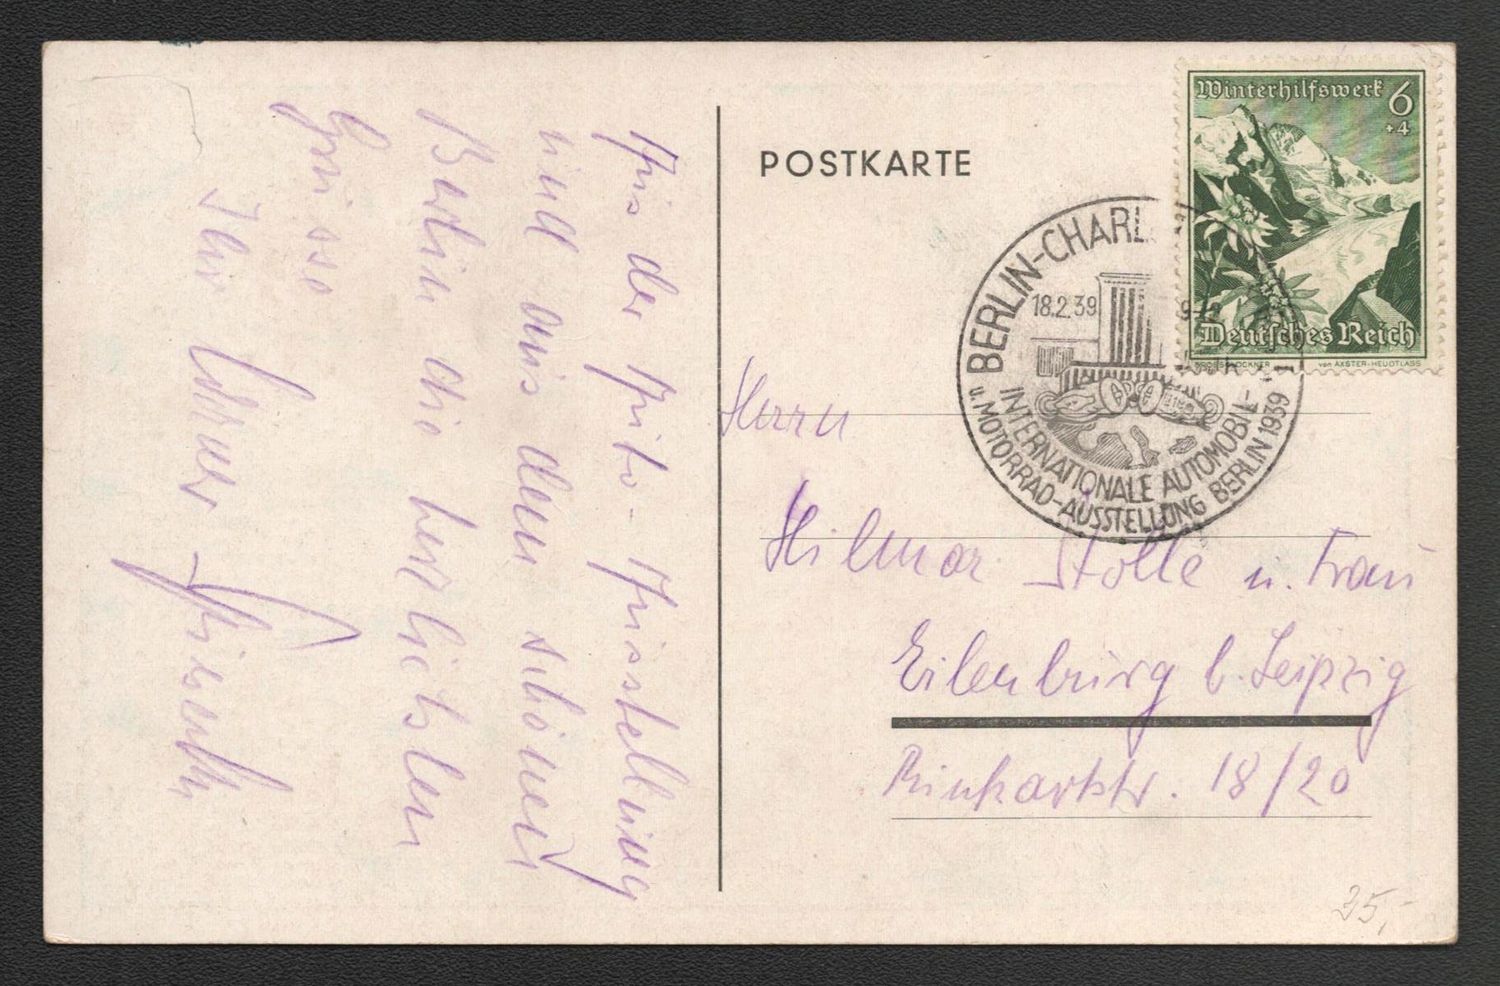 Aus der Auto-Ausstellung
und aus dem schönen
Berlin die herzlichsten
Grüsse
Ihr
POSTKARTE
Winterhilfswerk 6
+4
Deutsches Reich
von AXSTER-HEUDTLASS
BERLIN-CHARL
18.2.39
INTERNATIONALE AUTOMOBIL-
u. MOTORRAD-AUSSTELLUNG BERLIN 1939
Herrn
Hilmar Stolle u. Frau
Eilenburg b. Leipzig
Rinkartstr. 18/20
35,-